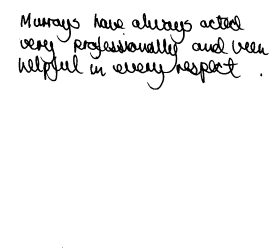 Murrays have always acted
very professionally and been
helpful in every respect .